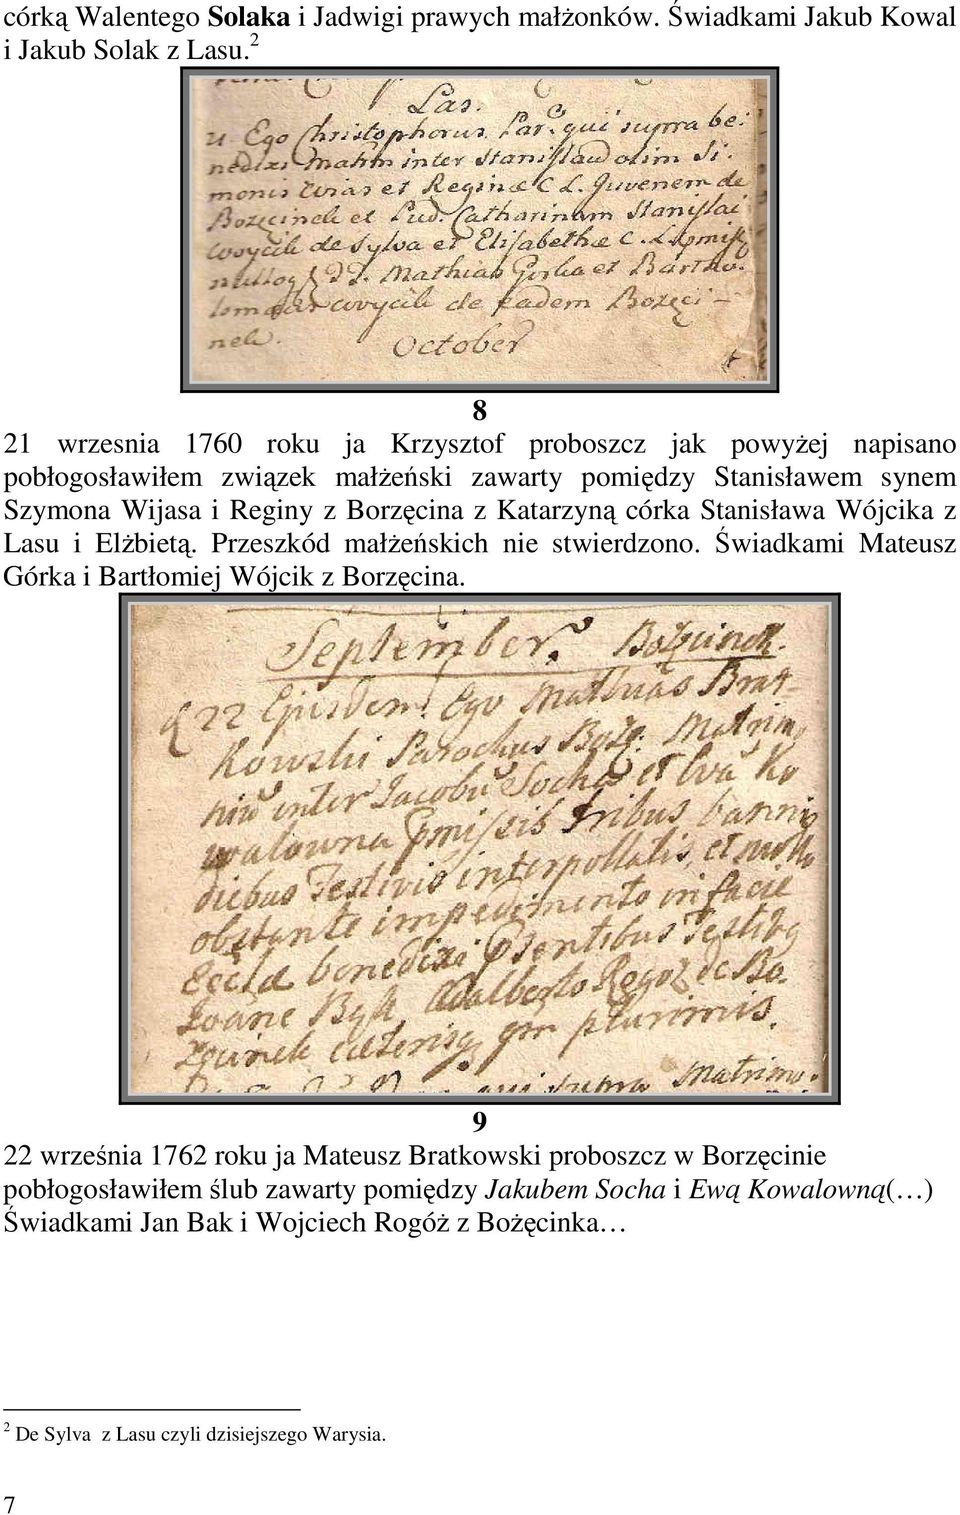 córką Walentego Solaka i Jadwigi prawych małżonków. Świadkami Jakub Kowal
i Jakub Solak z Lasu. 2
Las.
Ego Christophorus Par. qui supra be:
nedixi Matrim inter Stanislaũ olim Si
monis et Reginæ C L. Juvenem de
Bożęcinek et Catharinam Stanislai
de Sylva et Elisabethæ C. L.
Mathias Gorka et Barto
de eadem Bożęci-
nek.
October
8
21 wrzesnia 1760 roku ja Krzysztof proboszcz jak powyżej napisano
pobłogosławiłem związek małżeński zawarty pomiędzy Stanisławem synem
Szymona Wijasa i Reginy z Borzęcina z Katarzyną córka Stanisława Wójcika z
Lasu i Elżbietą. Przeszkód małżeńskich nie stwierdzono. Świadkami Mateusz
Górka i Bartłomiej Wójcik z Borzęcina.
September.
22 Ejusdem. Ego Mathias Brat-
kowski Parochus Bożę. Matrimo
niũ inter Jacobũ Socha et Evã Ko
walowna pmissis tribus bannis
diebus festivis interpollatis, et nullo
obstante impedimento in facie
Eccłæ benedixi psentibus Testibq
Joane Bąk Adalberto Regoz de Bo.
cæterisq qm plurimis.
qui supra Matrimo.
9
22 września 1762 roku ja Mateusz Bratkowski proboszcz w Borzęcinie
pobłogosławiłem ślub zawarty pomiędzy Jakubem Socha i Ewą Kowalowną(… )
Świadkami Jan Bak i Wojciech Rogóż z Bożęcinka…
2 De Sylva z Lasu czyli dzisiejszego Warysia.
7